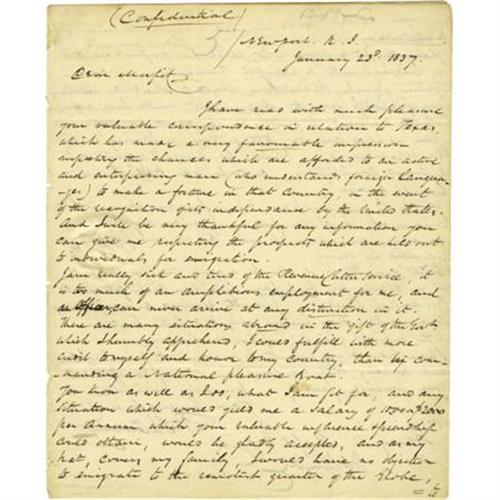 (Confidential)
5/ Newport. R. I.
January 23d. 1837.
Dear Morfit
I have read with much pleasure
your valuable correspondence in relation to Texas
which has made a very favourable impression
respecting the chances which are afforded to an active
and enterprising man (who understands foreign Langua-
-ges) to make a fortune in that Country, in the event
of the recognition of its independance by the United States.
And I will be very thankful for any information you
can give me respecting the prospects which are held out
to individuals for emigration.
I am really sick and tired of the Revenue Cutter Service. it
is too much of an amphibious employment for me, and
can never arrive at any distinction in it.
There are many situations abroad in the gift of the Govt.
which I humbly apprehend, I could fulfill with more
credit to myself and honor to my Country, than by com-
-manding a National pleasure Boat.
You know as well as I do, what I am fit for, and any
situation which would yield me a Salary of 1500 2000
per Annum, which your valuable influence & friendship
could obtain, would be gladly accepted, and as my
hat, covers my family, I would have no objection
to emigrate to the remotest quarter of the Globe,